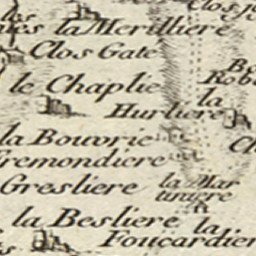 la Merilliere
Clos Gate
le Chaplie
Hurliere
la
la Bouvrie
Gremondiere
Gresliere
la Mar
tiniere
la Besliere
la
Foucardier